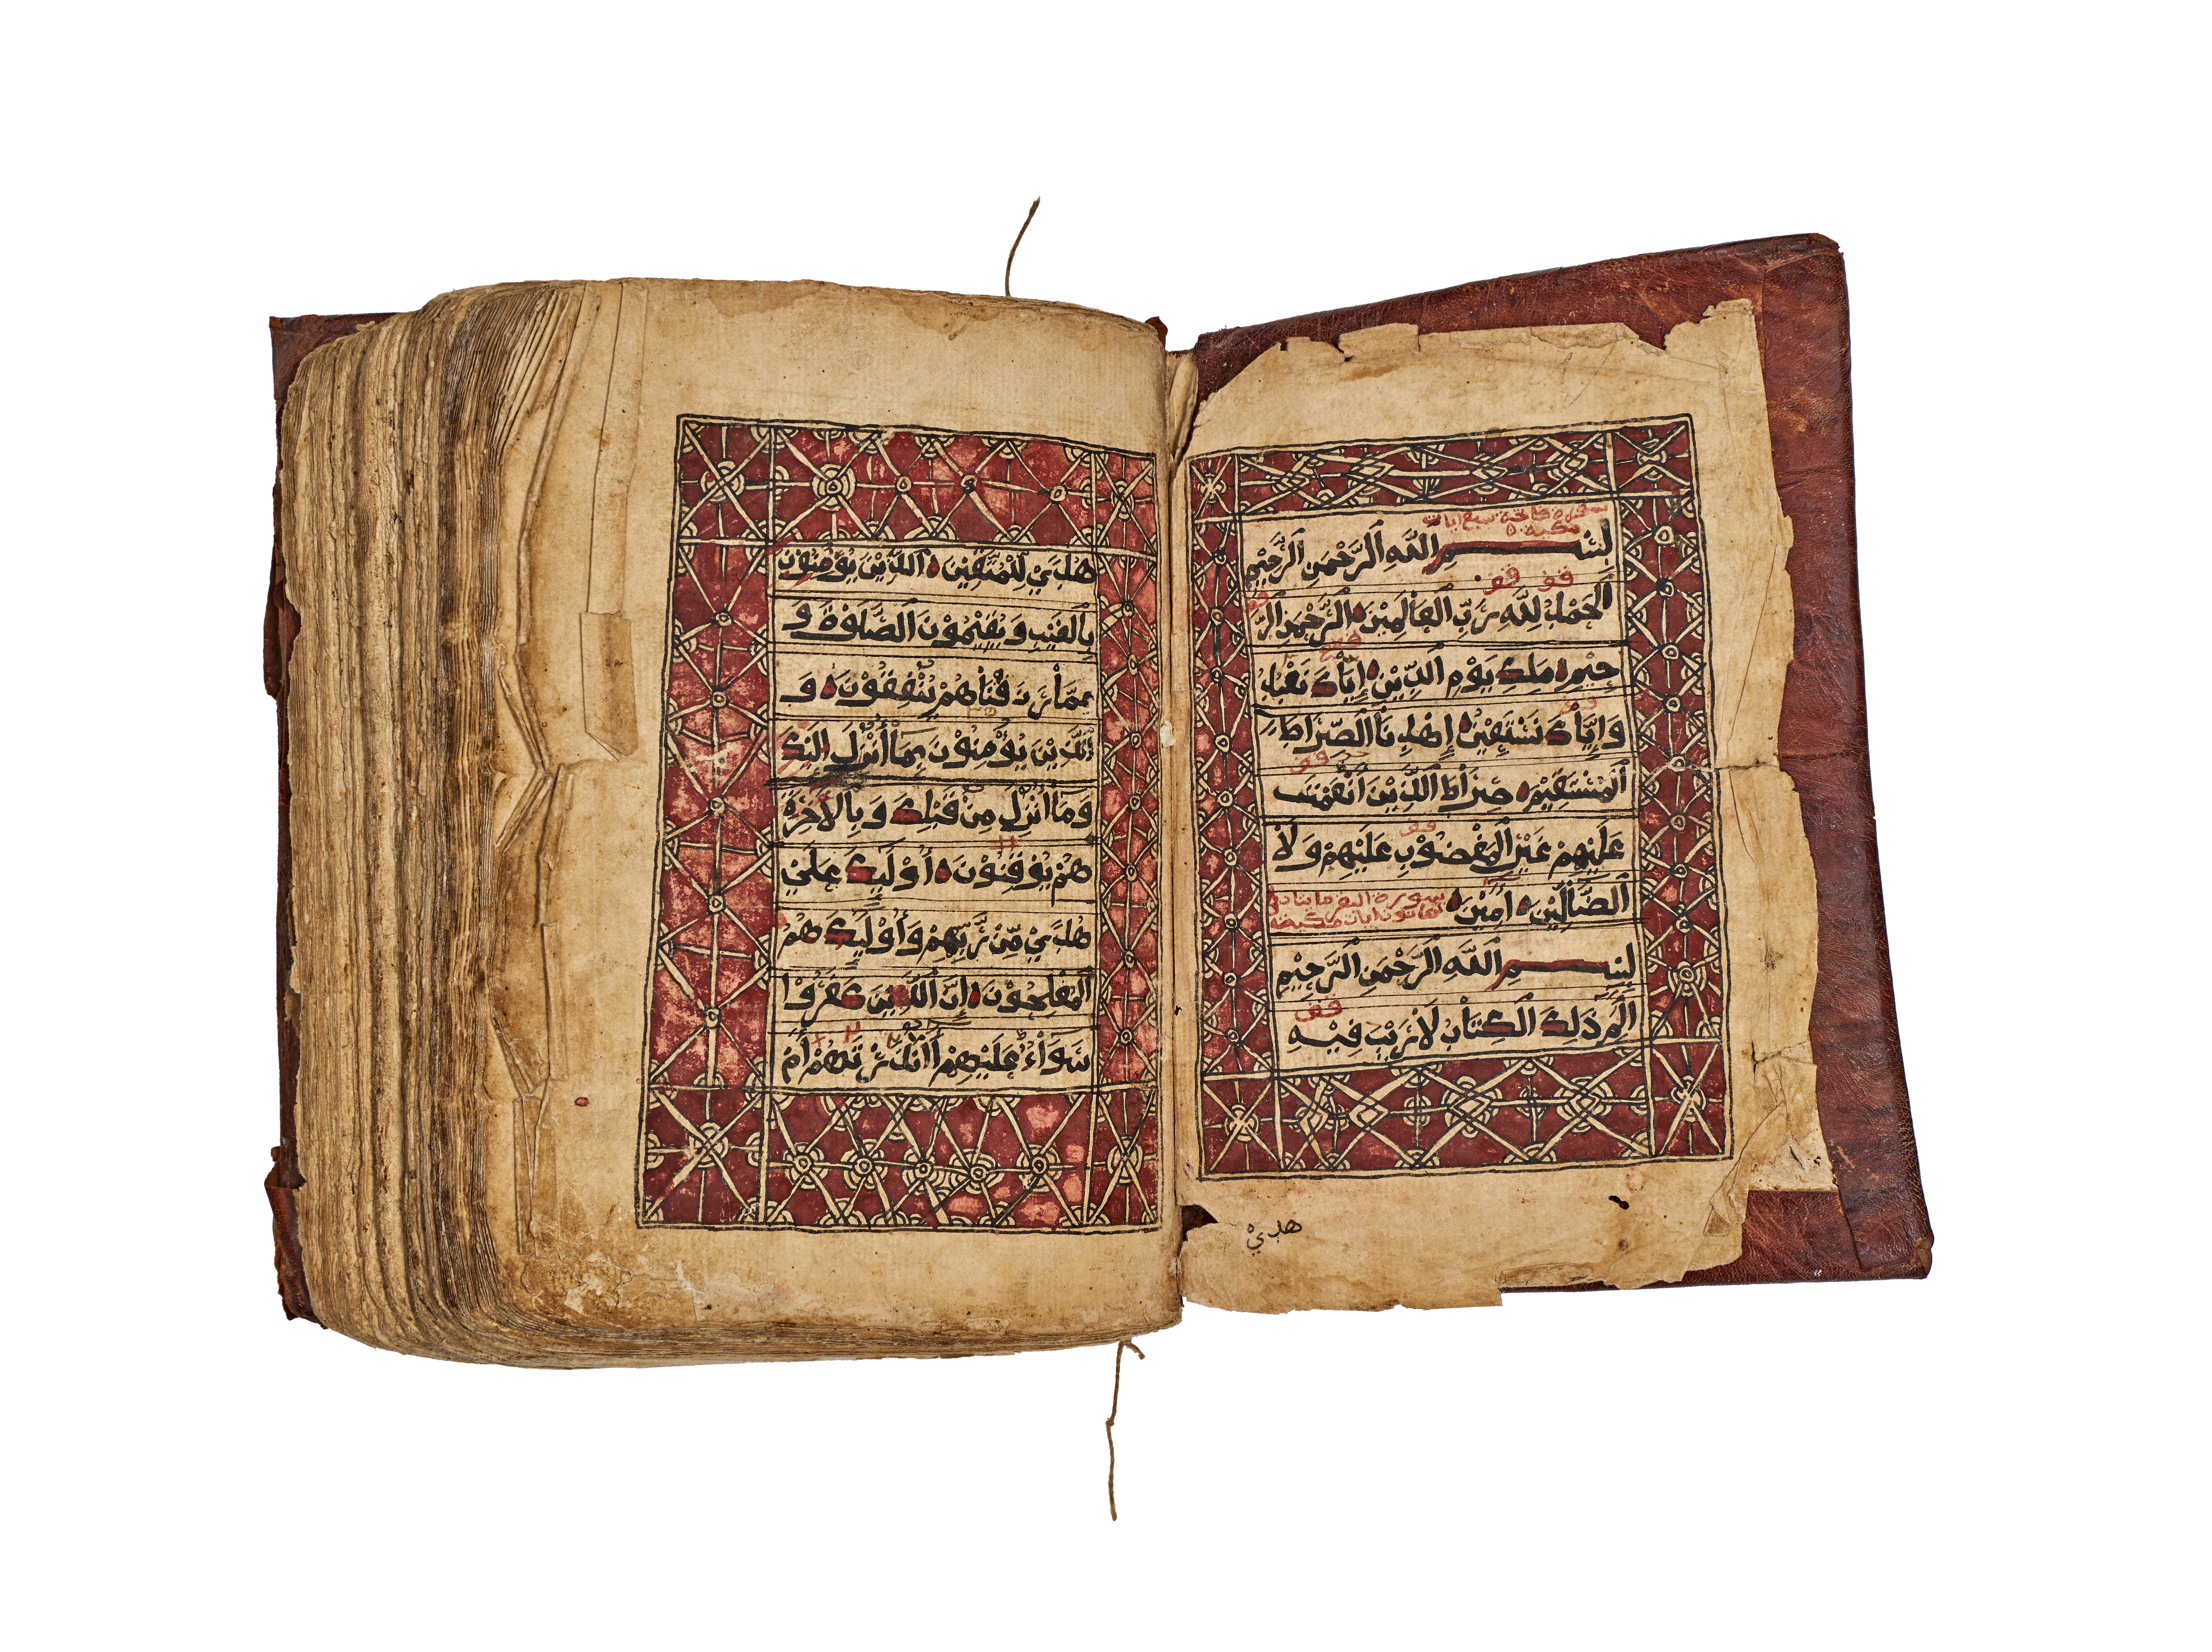 سورة فاتحة سبع ايات
مكية
بِسْمِ اللَّهِ الرَّحْمَنِ الرَّحِيْمِ
قف قف
اَلْحَمْدُ لِلَّهِ رَبِّ الْعَالَمِيْنَ الرَّحْمَنِ الرَّ
حِيْمِ مَلِكِ يَوْمِ الدِّيْنِ إِيَّاكَ نَعْبُدُ
وَإِيَّاكَ نَسْتَعِيْنُ إِهْدِنَا الصِّرَاطَ
الْمُسْتَقِيْمَ صِرَاطَ الَّذِيْنَ أَنْعَمْتَ
قف
عَلَيْهِمْ غَيْرِ الْمَغْضُوْبِ عَلَيْهِمْ وَلَا
الضَّالِّيْنَ أَمِيْنَ
سورة البقر مايتان و
بِسْمِ اللَّهِ الرَّحْمَنِ الرَّحِيْمِ
قف
الم ذَلِكَ الْكِتَابُ لَا رَيْبَ فِيْهِ
هدىْ
هُدَىْ لِلْمُتَّقِيْنَ الَّذِيْنَ يُؤْمِنُوْنَ
بِالْغَيْبِ وَيُقِيْمُوْنَ الصَّلَوٰةَ وَ
مِمَّا رَزَقْنَاهُمْ يُنْفِقُوْنَ وَ
الَّذِيْنَ يُؤْمِنُوْنَ بِمَا أُنْزِلَ إِلَيْكَ
وَمَا أُنْزِلَ مِنْ قَبْلِكَ وَبِالْأَخِرَةِ
هُمْ يُوْقِنُوْنَ أُوْلَئِكَ عَلَىْ
هُدَىْ مِّنْ رَّبِّهِمْ وَأُوْلَئِكَ هُمُ
الْمُفْلِحُوْنَ إِنَّ الَّذِيْنَ كَفَرُوْا
سَوَاءٌ عَلَيْهِمْ أَأَنْذَرْتَهُمْ أَمْ